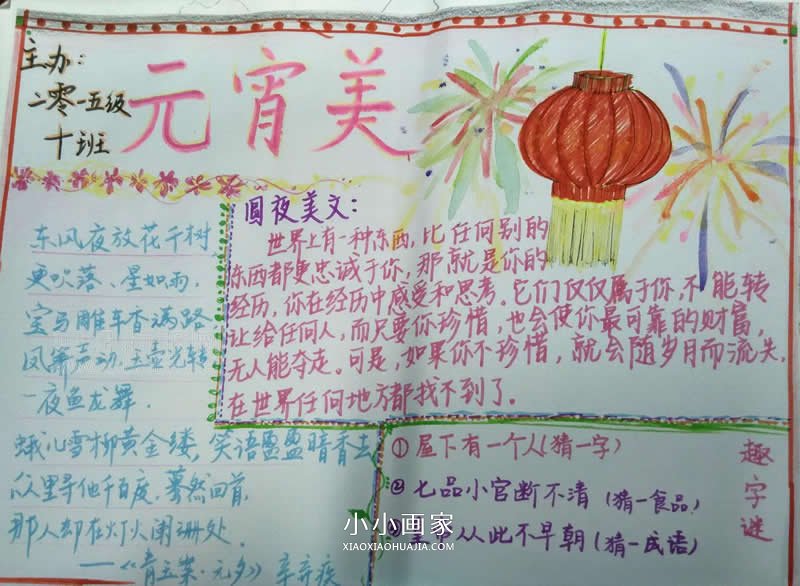 主办:
二零一五级
十班
元宵美
东风夜放花千树
更吹落、星如雨,
宝马雕车香满路
凤箫声动,玉壶光转
一夜鱼龙舞.
蛾儿雪柳黄金缕,笑语盈盈暗香去
众里寻他千百度,蓦然回首,
那人却在灯火阑珊处.
——《青玉案·元夕》辛弃疾
圆夜美文:
世界上有一种东西,比任何别的
东西都更忠诚于你,那就是你的
经历,你在经历中感受和思考。它们仅仅属于你,不能转
让给任何人,而只要你珍惜,也会使你最可靠的财富,
无人能夺走。可是,如果你不珍惜,就会随岁月而流失,
在世界任何地方都找不到了。
趣字谜
①屋下有一个人(猜一字)
②七品小官断不清(猜一食品)
从此不早朝(猜一成语)
小小画家
XIAOXIAOHUAJIA.COM